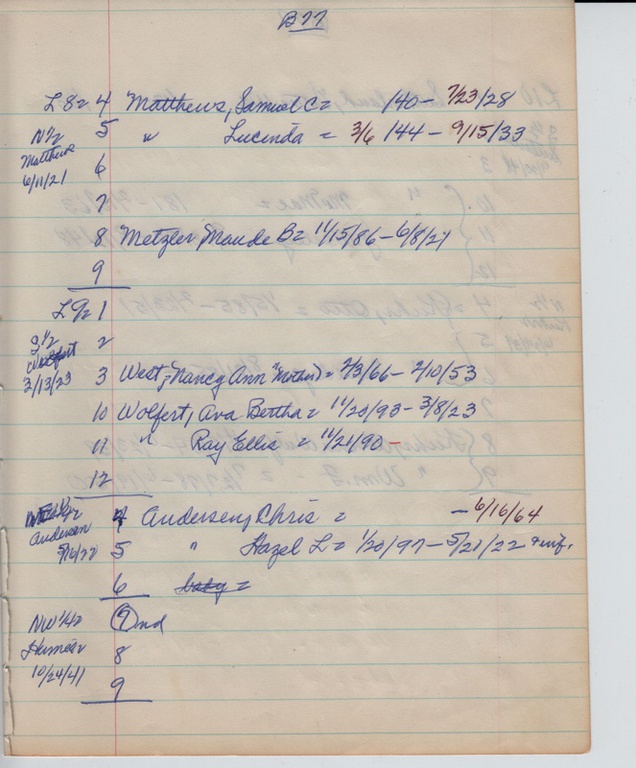 B77
L8= 4 Matthews, Samuel C= /40- 7/23/28
N½ 5 " Lucinda = 3/6/44 - 9/15/33
Matthews 6
6/11/21 7
8 Metzler, Maude B= 11/15/86-6/8/21
9
L9= 1
S½ 2
Wolfert
3/13/23 3 West, Nancy Ann "Mother" = 2/3/66- 2/10/53
10 Wolfert, Ava Bertha = 11/20/93- 3/8/23
11 " Ray Ellis = 11/21/90 -
12
4 Andersen, Chris = -6/16/64
Andersen 5 " Hazel L= 1/20/97-5/21/22 + inf.
6 baby =
NW¼ 7 nd
8
10/24/41 9